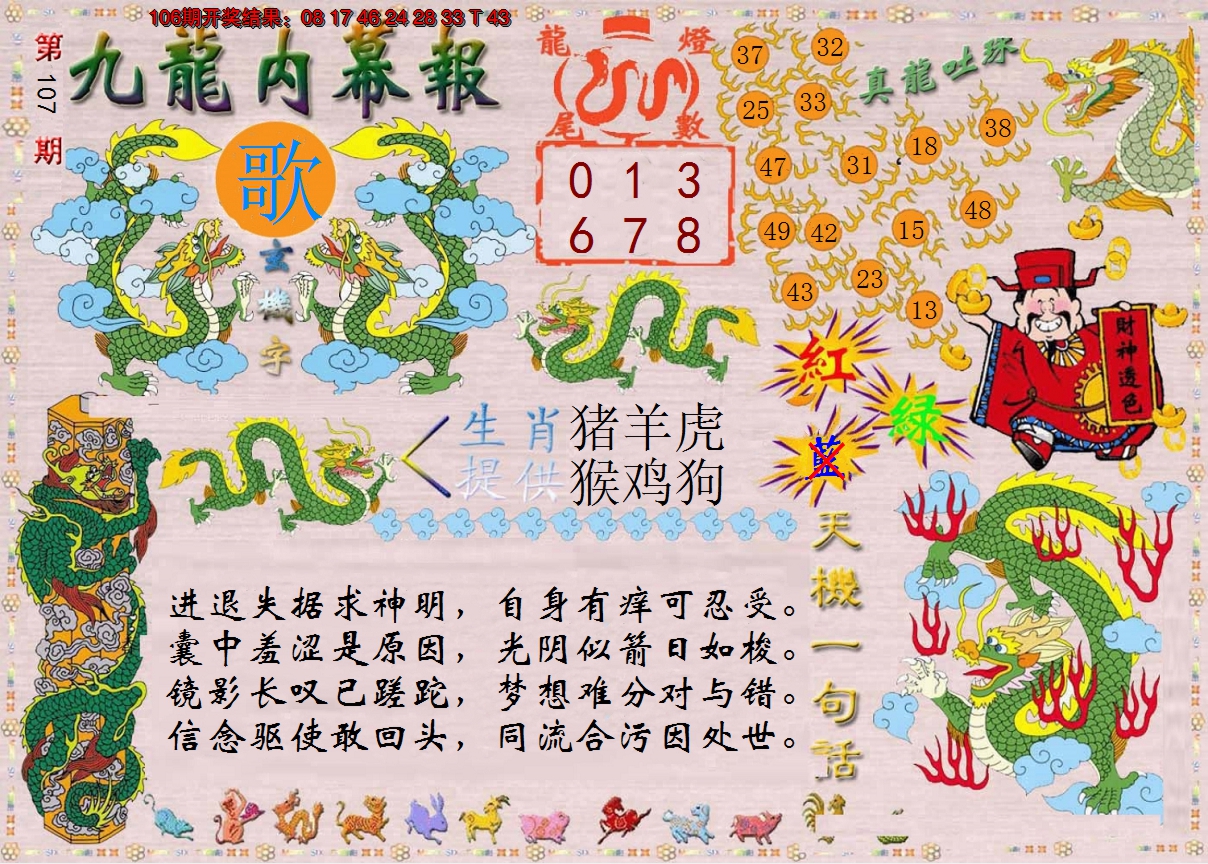 106期开奖结果：08 17 46 24 28 33 T 43
第107期
九龍内幕報
歌
玄機字
龍燈尾數
0 1 3
6 7 8
真龍吐珠
37 32
25 33
47 31 18 38
49 42 15 48
43 23 13
紅
綠
藍
財神透色
生肖 猪羊虎
提供 猴鸡狗
进退失据求神明，自身有痒可忍受。
囊中羞涩是原因，光阴似箭日如梭。
镜影长叹已蹉跎，梦想难分对与错。
信念驱使敢回头，同流合污因处世。
天機一句話